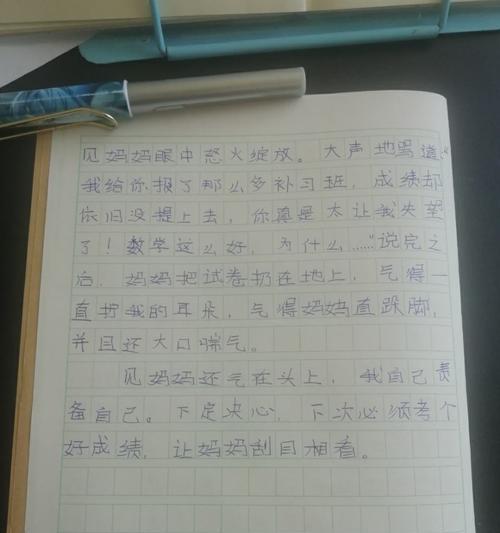 见妈妈眼中怒火绽放。大声地骂道："
我给你报了那么多补习班，成绩却
依旧没提上去，你真是太让我失望
了！数学这么好，为什么……"说完之
后，妈妈把试卷扔在地上，气得一
直拧我的耳朵，气得妈妈直跺脚，
并且还大口喘气。
见妈妈还气在头上，我自己责
备自己。下定决心，下次必须考个
好成绩，让妈妈刮目相看。